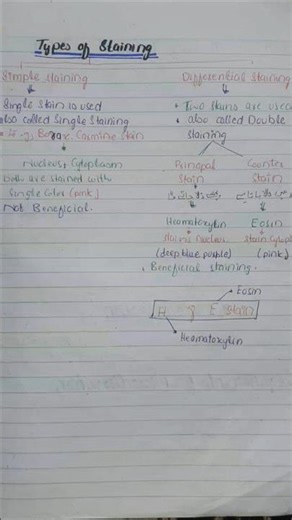 Types of Staining
Simple staining
Single Stain is used
also called Single Staining
e.g, Borax Carmine Stain
Nucleus + Cytoplasm
both are stained with
Single Color (pink)
Not Beneficial.
Differential Staining
Two stains are used
also called Double
Staining
Principal
Stain
Counter
Stain
Heamatoxylin
Eosin
Stains Nucleus
Stain Cytoplasm
(deep blue purple)
(pink)
Beneficial staining.
Eosin
H & E Stain
Heamatoxylin